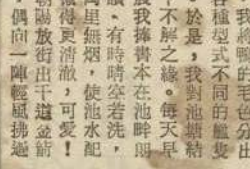 我將鴨的毛色分出
各種型式不同的艦隻
。於是，我對池塘結
不解之緣。每天早
我捧書本在池畔朗
讀。有時晴空若洗，
萬里無烟，使池水配
得更清澈，可愛！
朝陽放街出千道金箭
偶向一陣輕風拂過